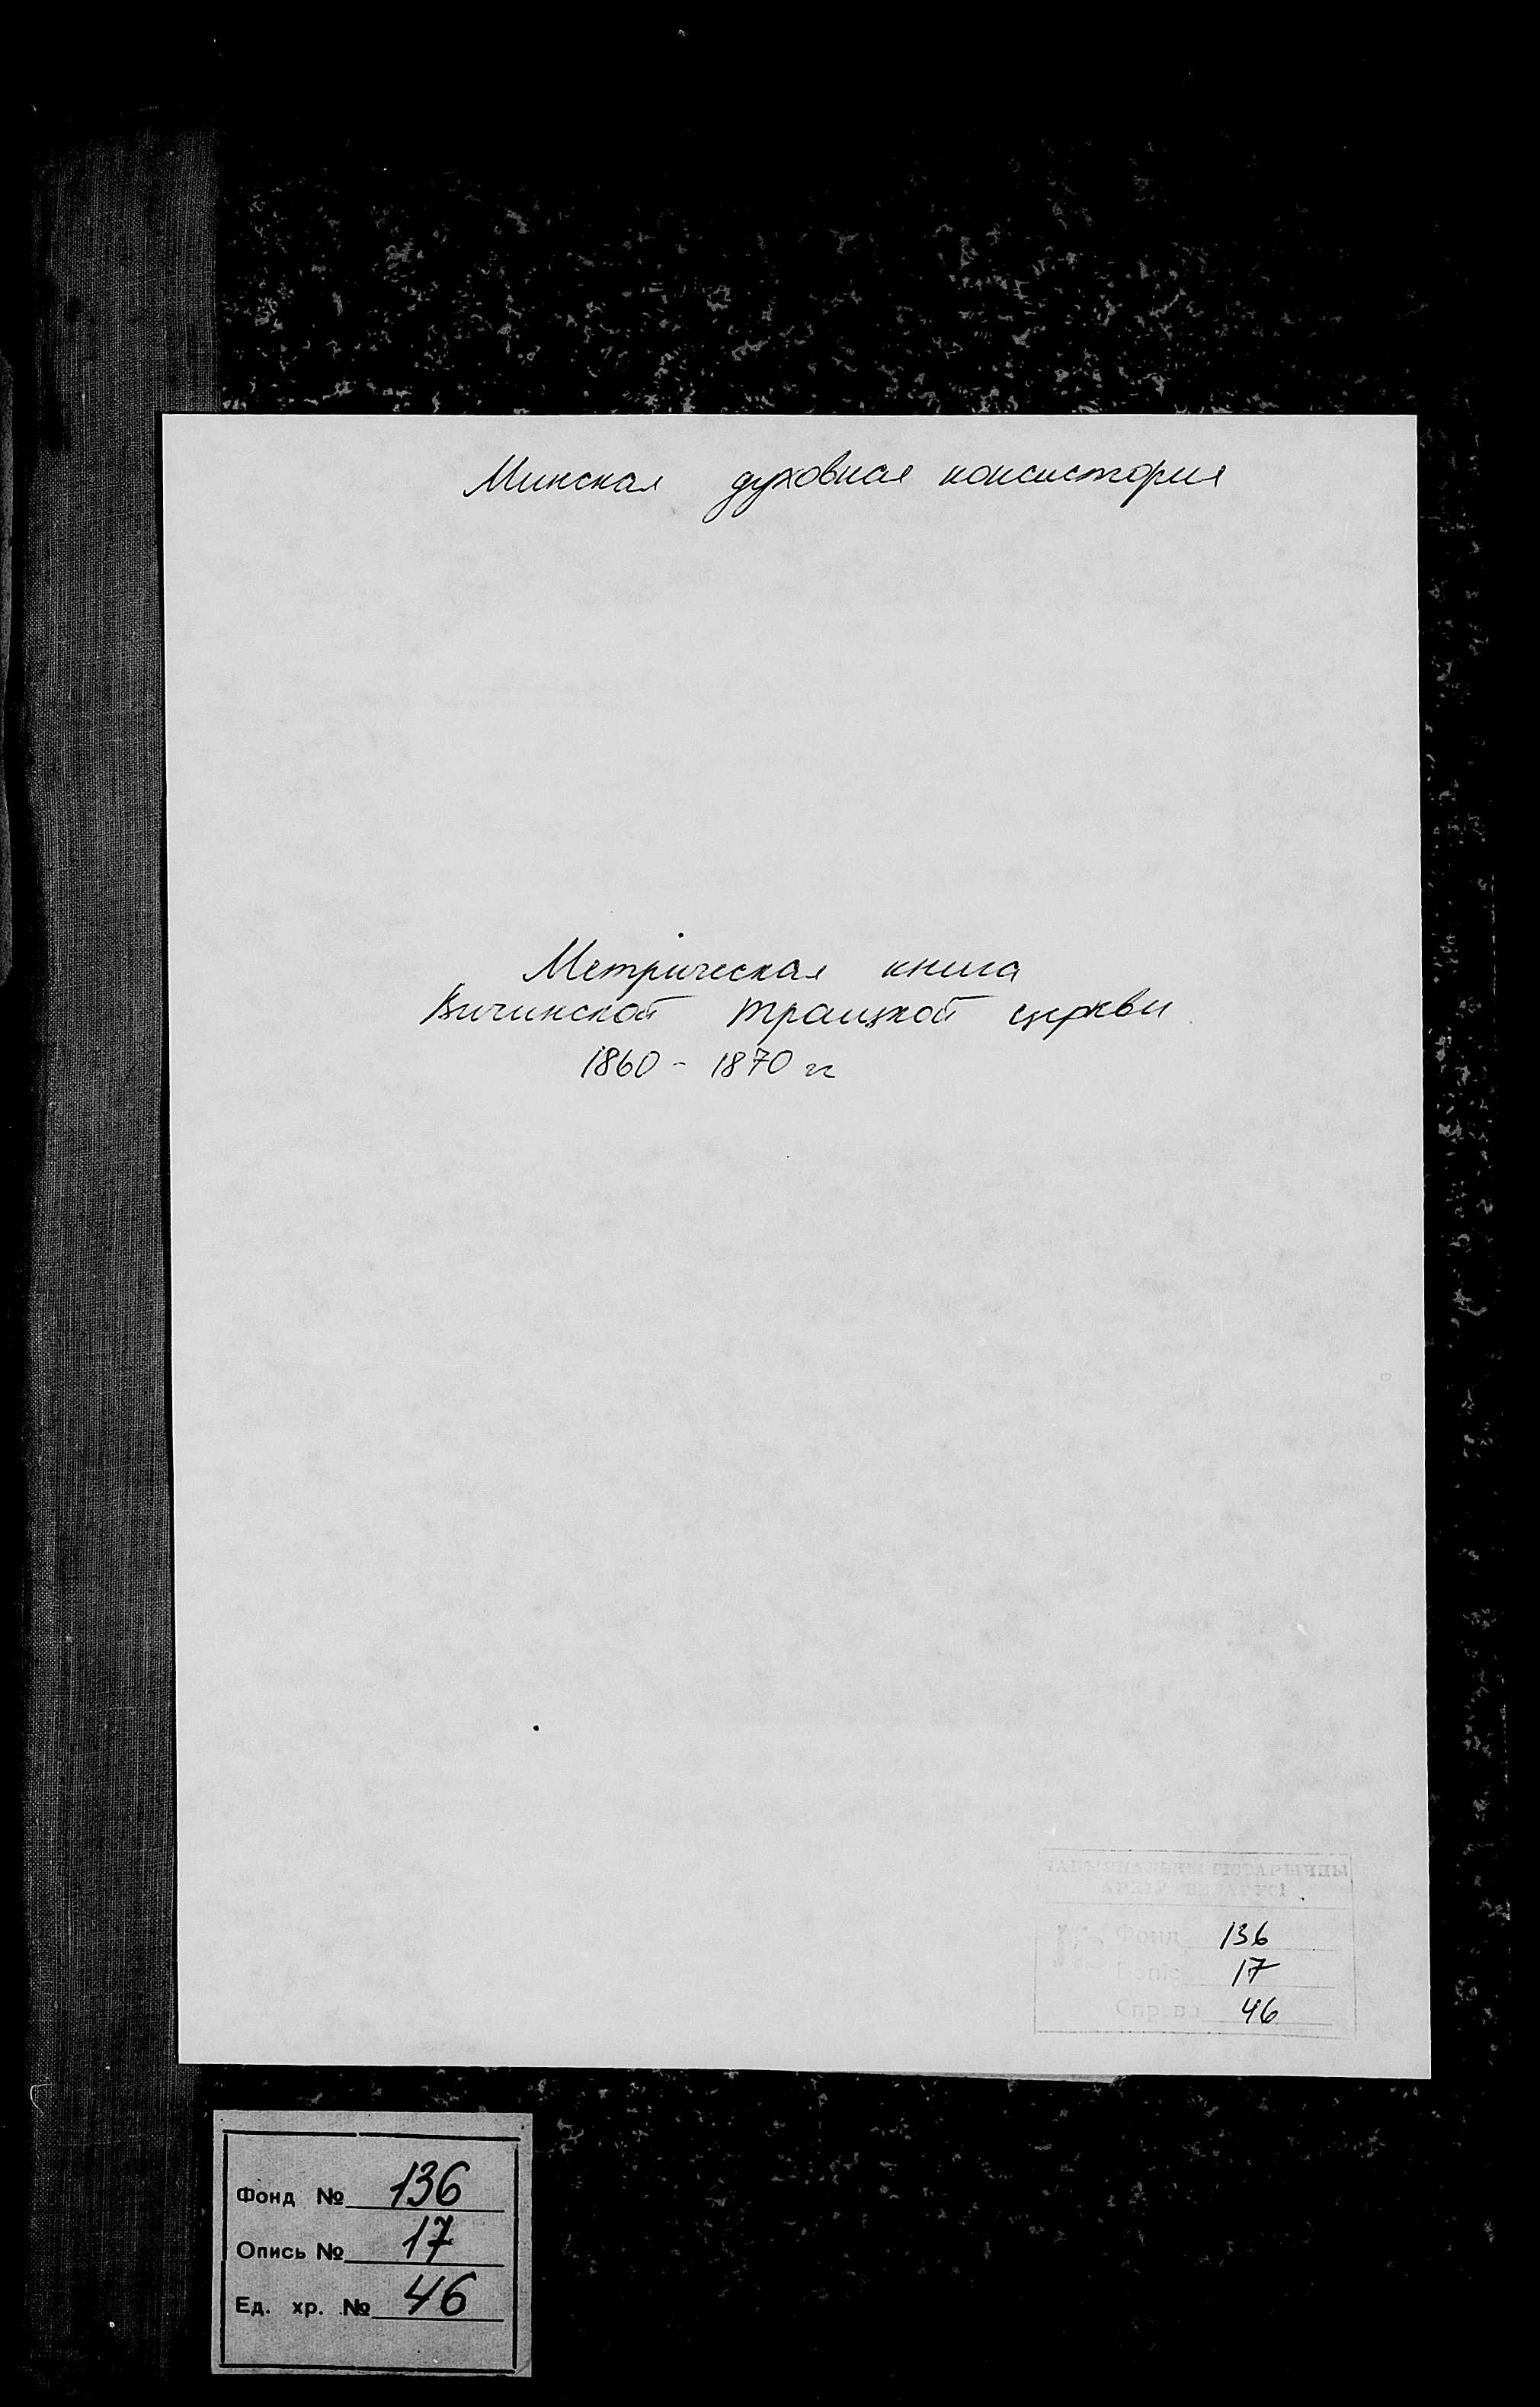 Минская духовная консистория
Метрическая книга
Вичинской Траицкой церкви
1860 - 1870 гг
НАЦЫЯНАЛЬНЫ ГІСТАРЫЧНЫ
АРХІЎ БЕЛАРУСІ
Фонд 136
Вопіс 17
Справа 46
Фонд № 136
Опись № 17
Ед. хр. № 46